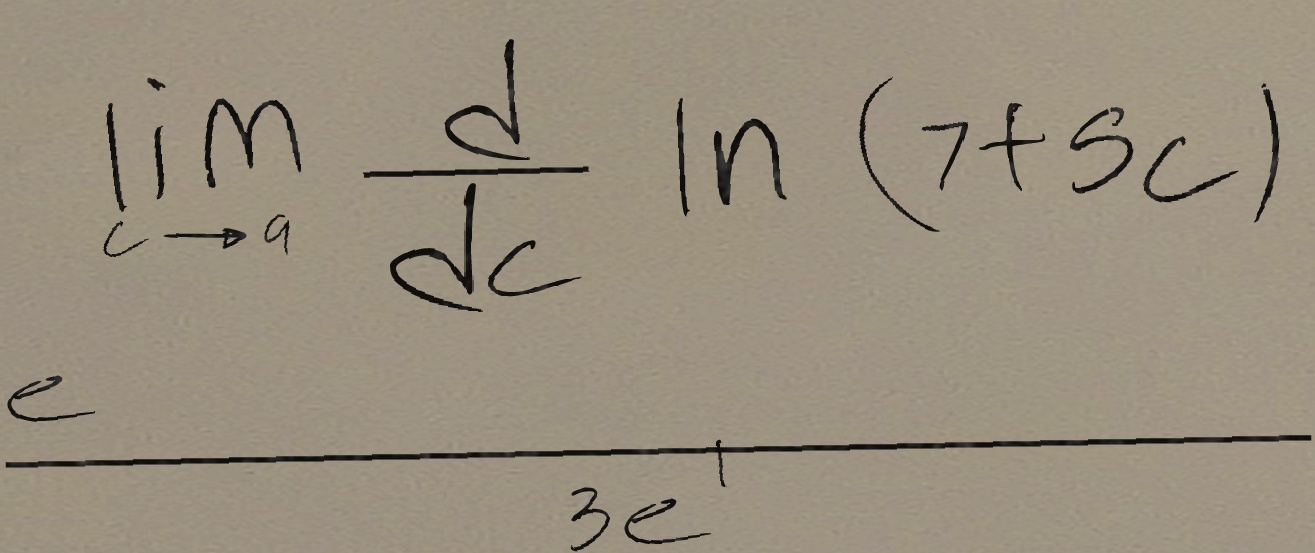 \frac{e^{\lim_{c \to 9} \frac{d}{dc} \ln (7+5c)}}{3e^{1}}